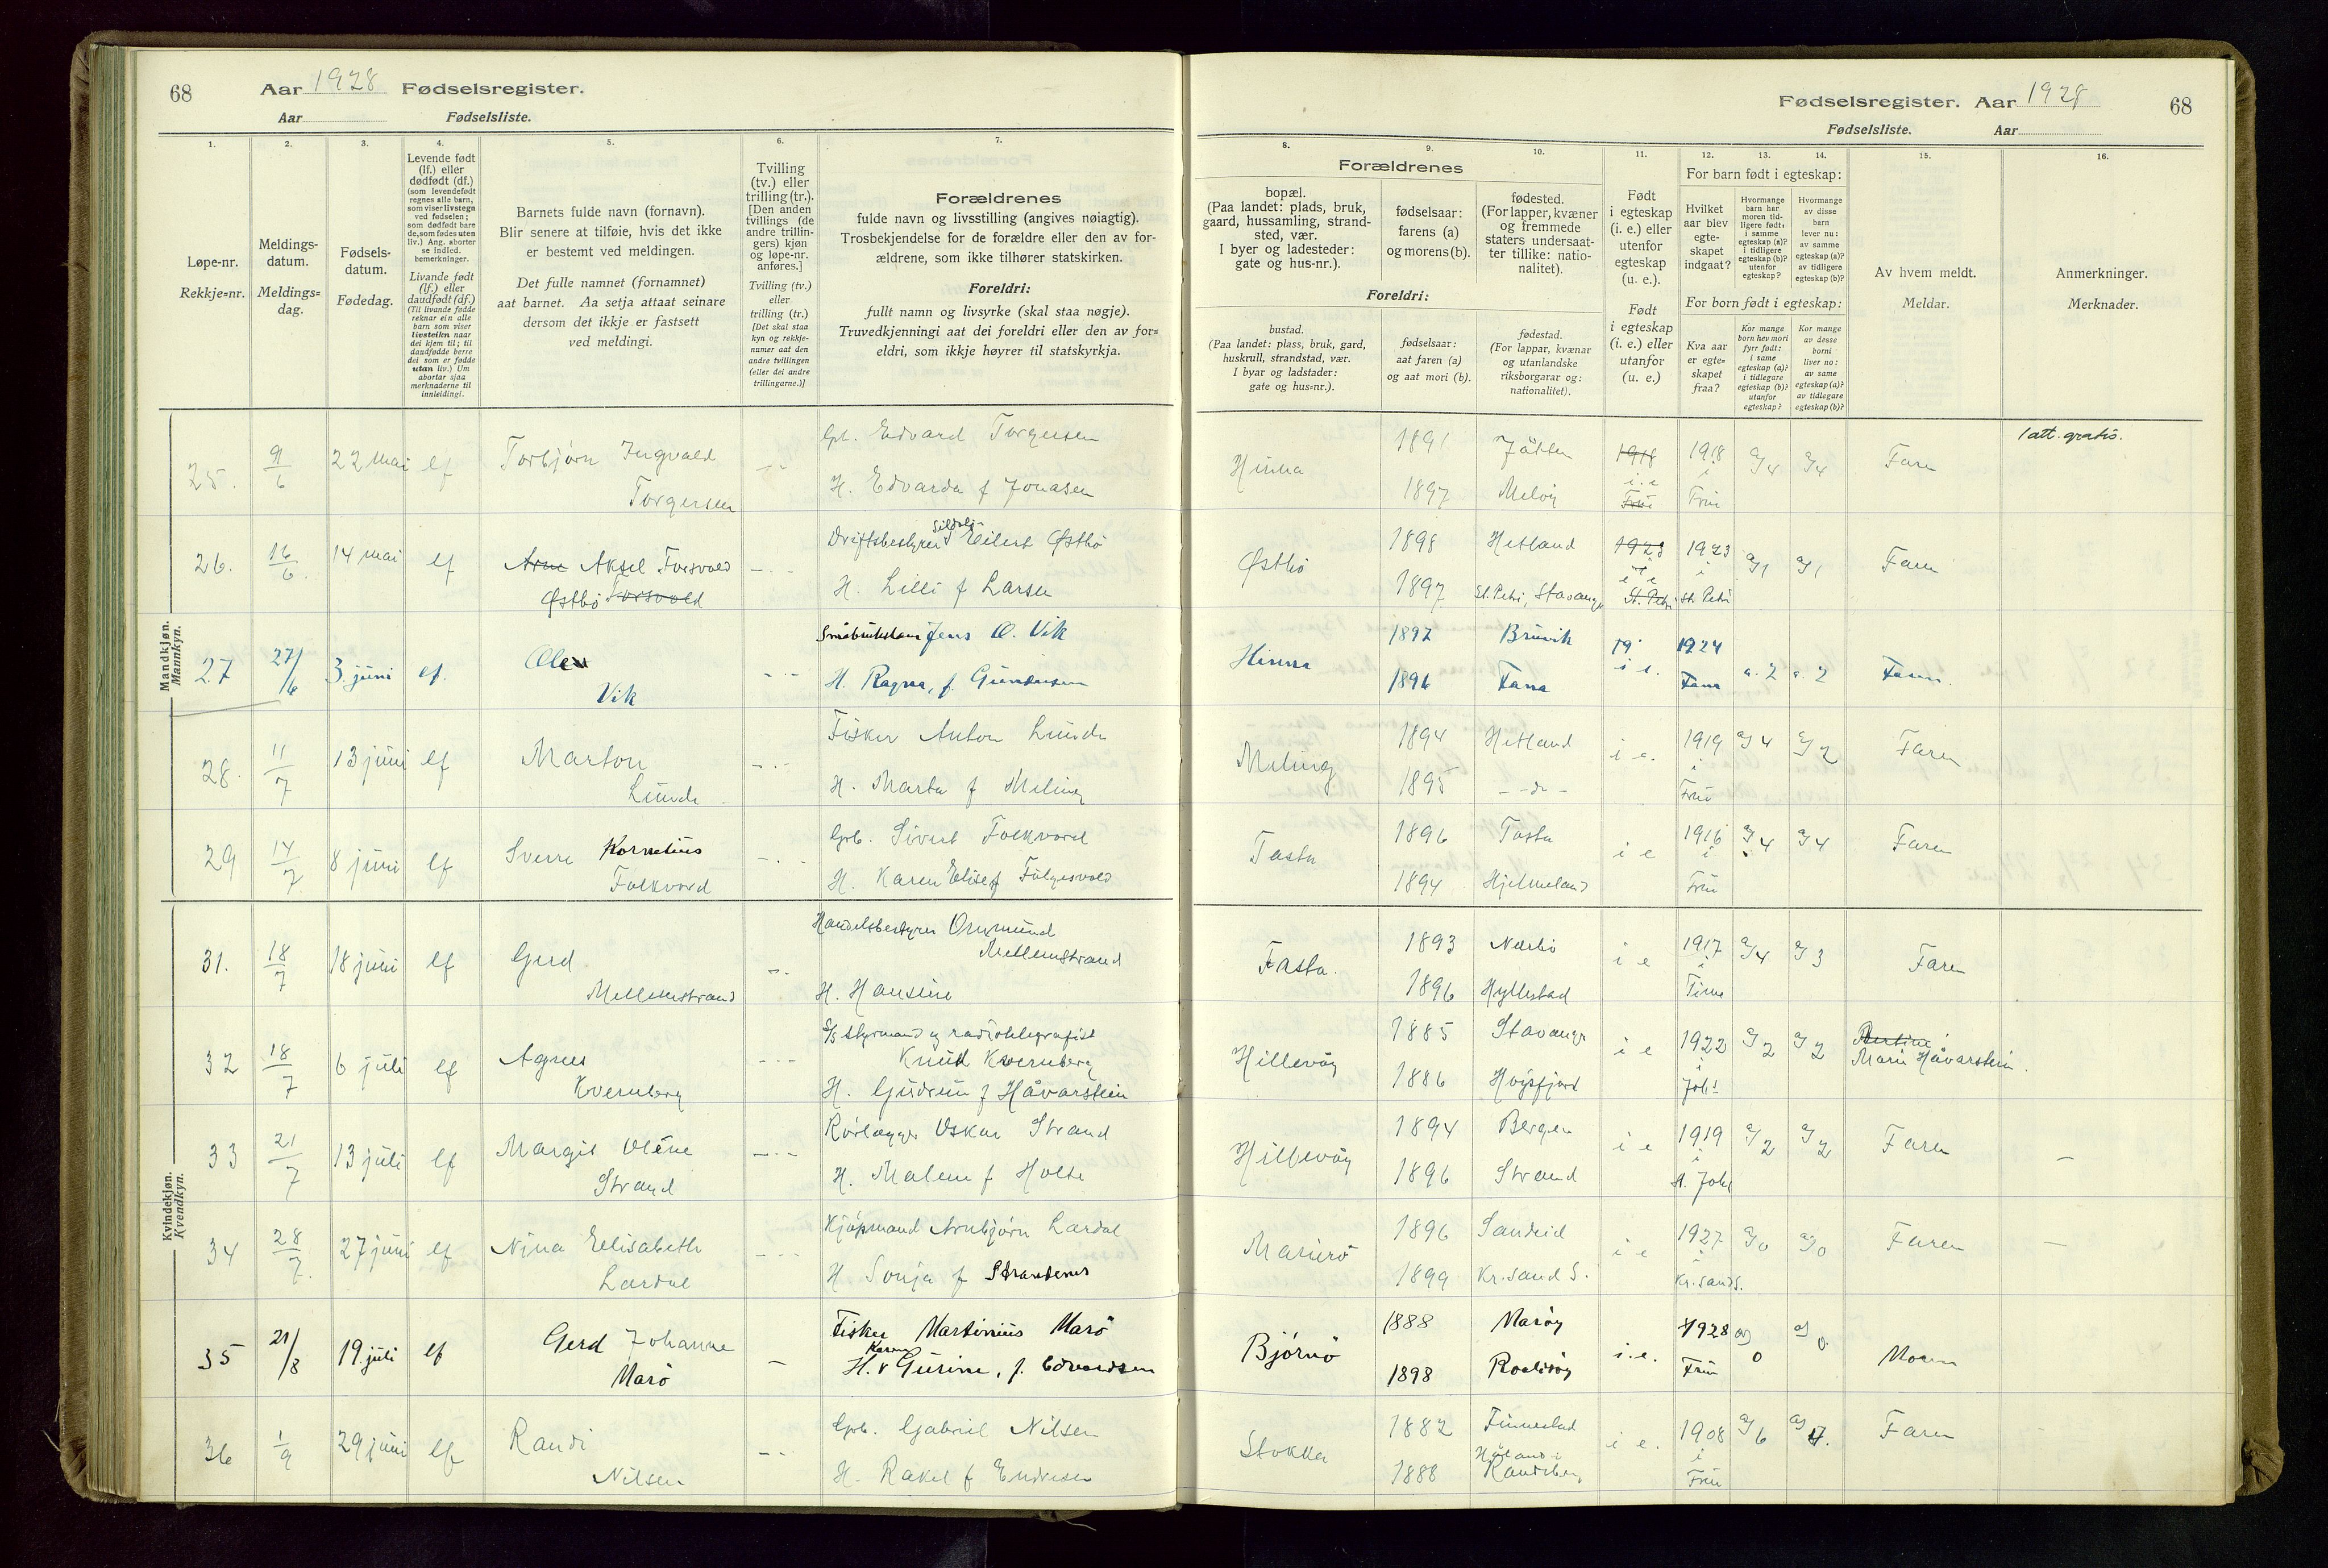 68 Aar 1928 Fødselsregister.
Aar Fødselsliste.
1. 2. 3. 4. 5. 6. 7.
Løpe-nr.
Rekkje=nr.
Meldings-
datum.
Meldings=
dag.
Fødsels-
datum.
Fødedag.
Levende født
(lf.) eller
dødfødt (df.)
(som levendefødt
regnes alle barn,
som viser livstegn
ved fødselen;
som dødfødt bare
de, som fødes uten
liv.) Ang. aborter
se indled.
bemerkninger.
Livande født
(lf.) eller
daudfødt (df.)
(Til livande fødde
reknar ein alle
barn som viser
livsteikn naar
dei kjem til; til
daudfødde berre
dei som er fødde
utan liv.) Um
abortar sjaa
merknaderne til
innleidingi.
Barnets fulde navn (fornavn).
Blir senere at tilføie, hvis det ikke
er bestemt ved meldingen.
Det fulle namnet (fornamnet)
aat barnet. Aa setja attaat seinare
dersom det ikkje er fastsett
ved meldingi.
Tvilling
(tv.) eller
trilling (tr.).
[Den anden
tvillings (de
andre trillin-
gers) kjøn
og løpe-nr.
anføres.]
Tvilling (tv.)
eller
trilling (tr.)
[Det skal staa
kyn og rekkje-
numer aat den
andre tvillingen
(eller dei andre
trillingarne.)]
Forældrenes
fulde navn og livsstilling (angives nøiagtig).
Trosbekjendelse for de forældre eller den av for-
ældrene, som ikke tilhører statskirken.
Foreldri:
fullt namn og livsyrke (skal staa nøgje).
Truvedkjenningi aat dei foreldri eller den av for=
eldri, som ikkje høyrer til statskyrkja.
Mandkjøn.
Mannkyn.
25. 9/6 22 mai lf Torbjørn Ingvald Gbr. Edvard Torgersen
Torgersen H. Edvarda f Jonasen
26. 16/6. 14 mai lf Arne Aksel Torsvald Driftsbestyrer Eilert Østbö
Østbö Torsvald H. Lilli f Larsen
27 27/6 3. juni lf. Ole Småbrukslærer Jens O. Vik
Vik H. Ragna, f. Gundersen
28. 11/7 13 juni lf Marton Fisker Anton Lunde
Lunde H. Marta f Meling
29 14/7 8 juni lf Sverre Kornelius Gbr. Sivert Folkvord
Folkvord H. Karen Elise f Fülgesvold
Kvindekjøn.
Kvendkyn.
31. 18/7 18 juni lf Gerd Handelsbestyrer Ommund
Mellemstrand
Mellemstrand H. Hansine
32 18/7 6 juli lf Agnes Styrmand og radiotelegrafist
Knut Kvernberg
Kvernberg H. Gudrun f Håvarstein
33 21/7 13 juli lf Margit Oléne Rörlægger Oskar Strand
Strand H. Malene f Holte
34 28/7. 27 juni lf Nina Elisabeth Kjöpmand Arnbjørn Lardal
Lardal H Sonja f Strandenes
35 21/8 19. juli lf Gerd Johanne Fisker Martinius Marö
Karen
Marö H. v Gurine, f. Edvardsen
36 1/9 29 juni lf Randi Gbr. Gabriel Nilsen
Nilsen H. Rakel f Endresen
Fødselsregister. Aar 1928 68
Fødselsliste. Aar
8. 9. 10. 11. 12. 13. 14. 15. 16.
Forældrenes
bopæl.
(Paa landet: plads, bruk,
gaard, hussamling, strand-
sted, vær.
I byer og ladesteder:
gate og hus-nr.).
fødselsaar:
farens (a)
og morens (b).
fødested.
(For lapper, kvæner
og fremmede
staters undersaat-
ter tillike: natio-
nalitet).
Foreldri:
bustad.
(Paa landet: plass, bruk, gard,
huskrull, strandstad, vær.
I byar og ladstader:
gate og hus=nr.).
fødselsaar:
aat faren (a)
og aat mori (b).
fødestad.
(For lappar, kvænar
og utanlandske
riksborgarar og:
nationalitet).
Født
i egteskap
(i. e.) eller
utenfor
egteskap
(u. e.).
Født
i egteskap
(i. e.) eller
utanfor
(u. e.)
For barn født i egteskap:
Hvilket
aar blev
egte-
skapet
indgaat?
Hvormange
barn har
moren tid-
ligere født:
i samme
egteskap (a)?
i tidligere
egteskap (b)?
utenfor
egteskap?
Hvormange
av disse
barn
lever nu:
av samme
egteskap (a)?
av tidligere
egteskap (b)?
For born født i egteskap:
Kva aar
er egte=
skapet
fraa?
Kor mange
born hev mori
fyrr født:
i same
egteskap (a)?
i tidlegare
egteskap (b)?
utanfor
egteskap?
Kor mange
av desse
borni
liver no:
av same
egteskap (a)?
av tidlegare
egteskap (b)?
Av hvem meldt.
Meldar.
Anmerkninger.
Merknader.
Hinna 1891 Jåtten 1918 1918 a/4 a/4 Faren 1 att. gratis.
1897 Meløy i. e Frue i Frue
Østbö 1898 Hetland 1923 1923 a/1 a/1 Faren
1897 St. Petri, Stavanger i e St. Petri i St. Petri
Hinna 1897 Bruvik 19 1924 a. 2 a. 2 Faren.
1896 Fana i e. Fana
Meling 1894 Hetland i e. 1919 a/4 a/2 Faren
1895 - -do - i Frue
Tasta 1896 Tasta i e 1916 a/4 a/4 Faren
1894 Hjelmeland i Frue
Tasta. 1893 Nærbö i e 1917 a/4 a/3 Faren
1896 Hyllestad i Time
Hillevåg 1885 Stavanger i e 1922 a/2 a/2 Bertine
Marie Håvarstein.
1886 Høgsfjord i Joh!
Hillevåg 1894 Bergen i e 1919 a/2 a/2 Faren –
1896 Strand i St. Joh
Mariero 1896 Sandeid i e 1927 a/0 a/0 Faren –
1899 Kr.sand S. i Kr.sand S.
Bjórnö 1888 Maröy i. e. 1928 a/0 a/0. Moren
1898 Roaldsøy Frue
Stokka 1882 Finnestad i e. 1908 a/6 Faren
Høland i
1888 Randeberg i Frue